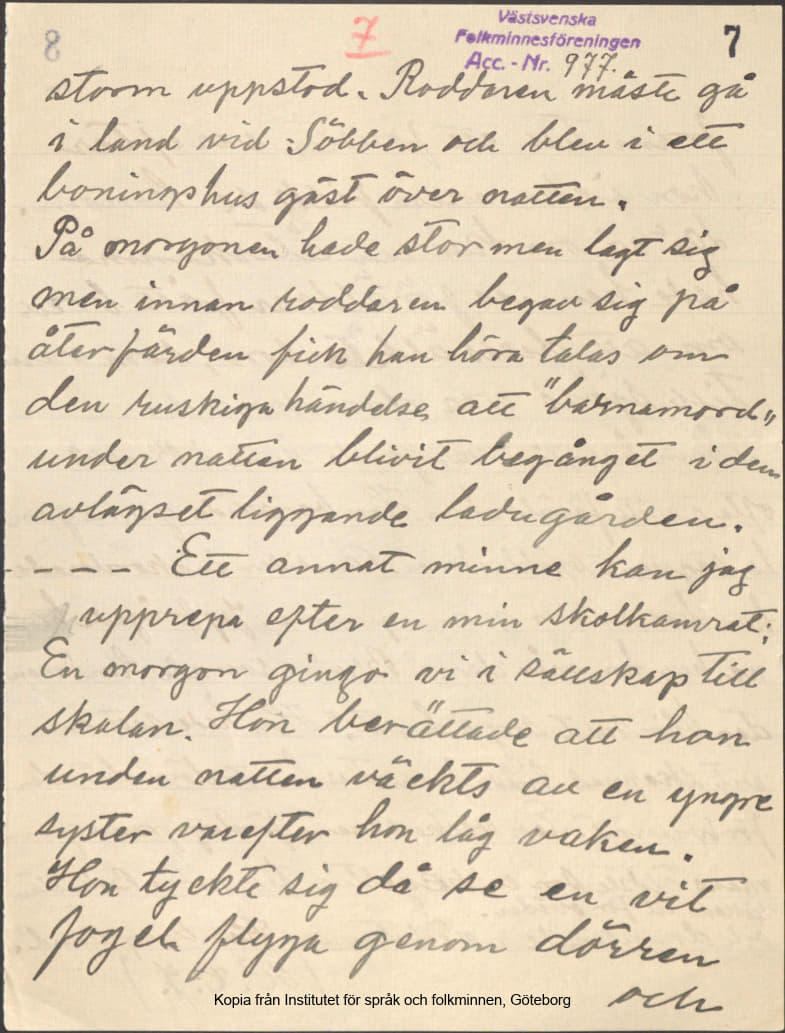 8
7
Västsvenska
Folkminnesföreningen
Acc. - Nr. 977.
7
storm uppstod. Roddaren måste gå
i land vid Söbben och blev i ett
boningshus gäst över natten.
På morgonen hade stormen lagt sig
men innan roddaren begav sig på
återfärden fick han höra talas om
den ruskiga händelse, att "barnamord"
under natten blivit begånget i den
avlägset liggande ladugården.
---- Ett annat minne kan jag
upprepa efter en min skolkamrat:
En morgon gingo vi i sällskap till
skolan. Hon berättade att hon
under natten väckts av en yngre
syster varefter hon låg vaken.
Hon tyckte sig då se en vit
fogel flyga genom dörren
och
Kopia från Institutet för språk och folkminnen, Göteborg